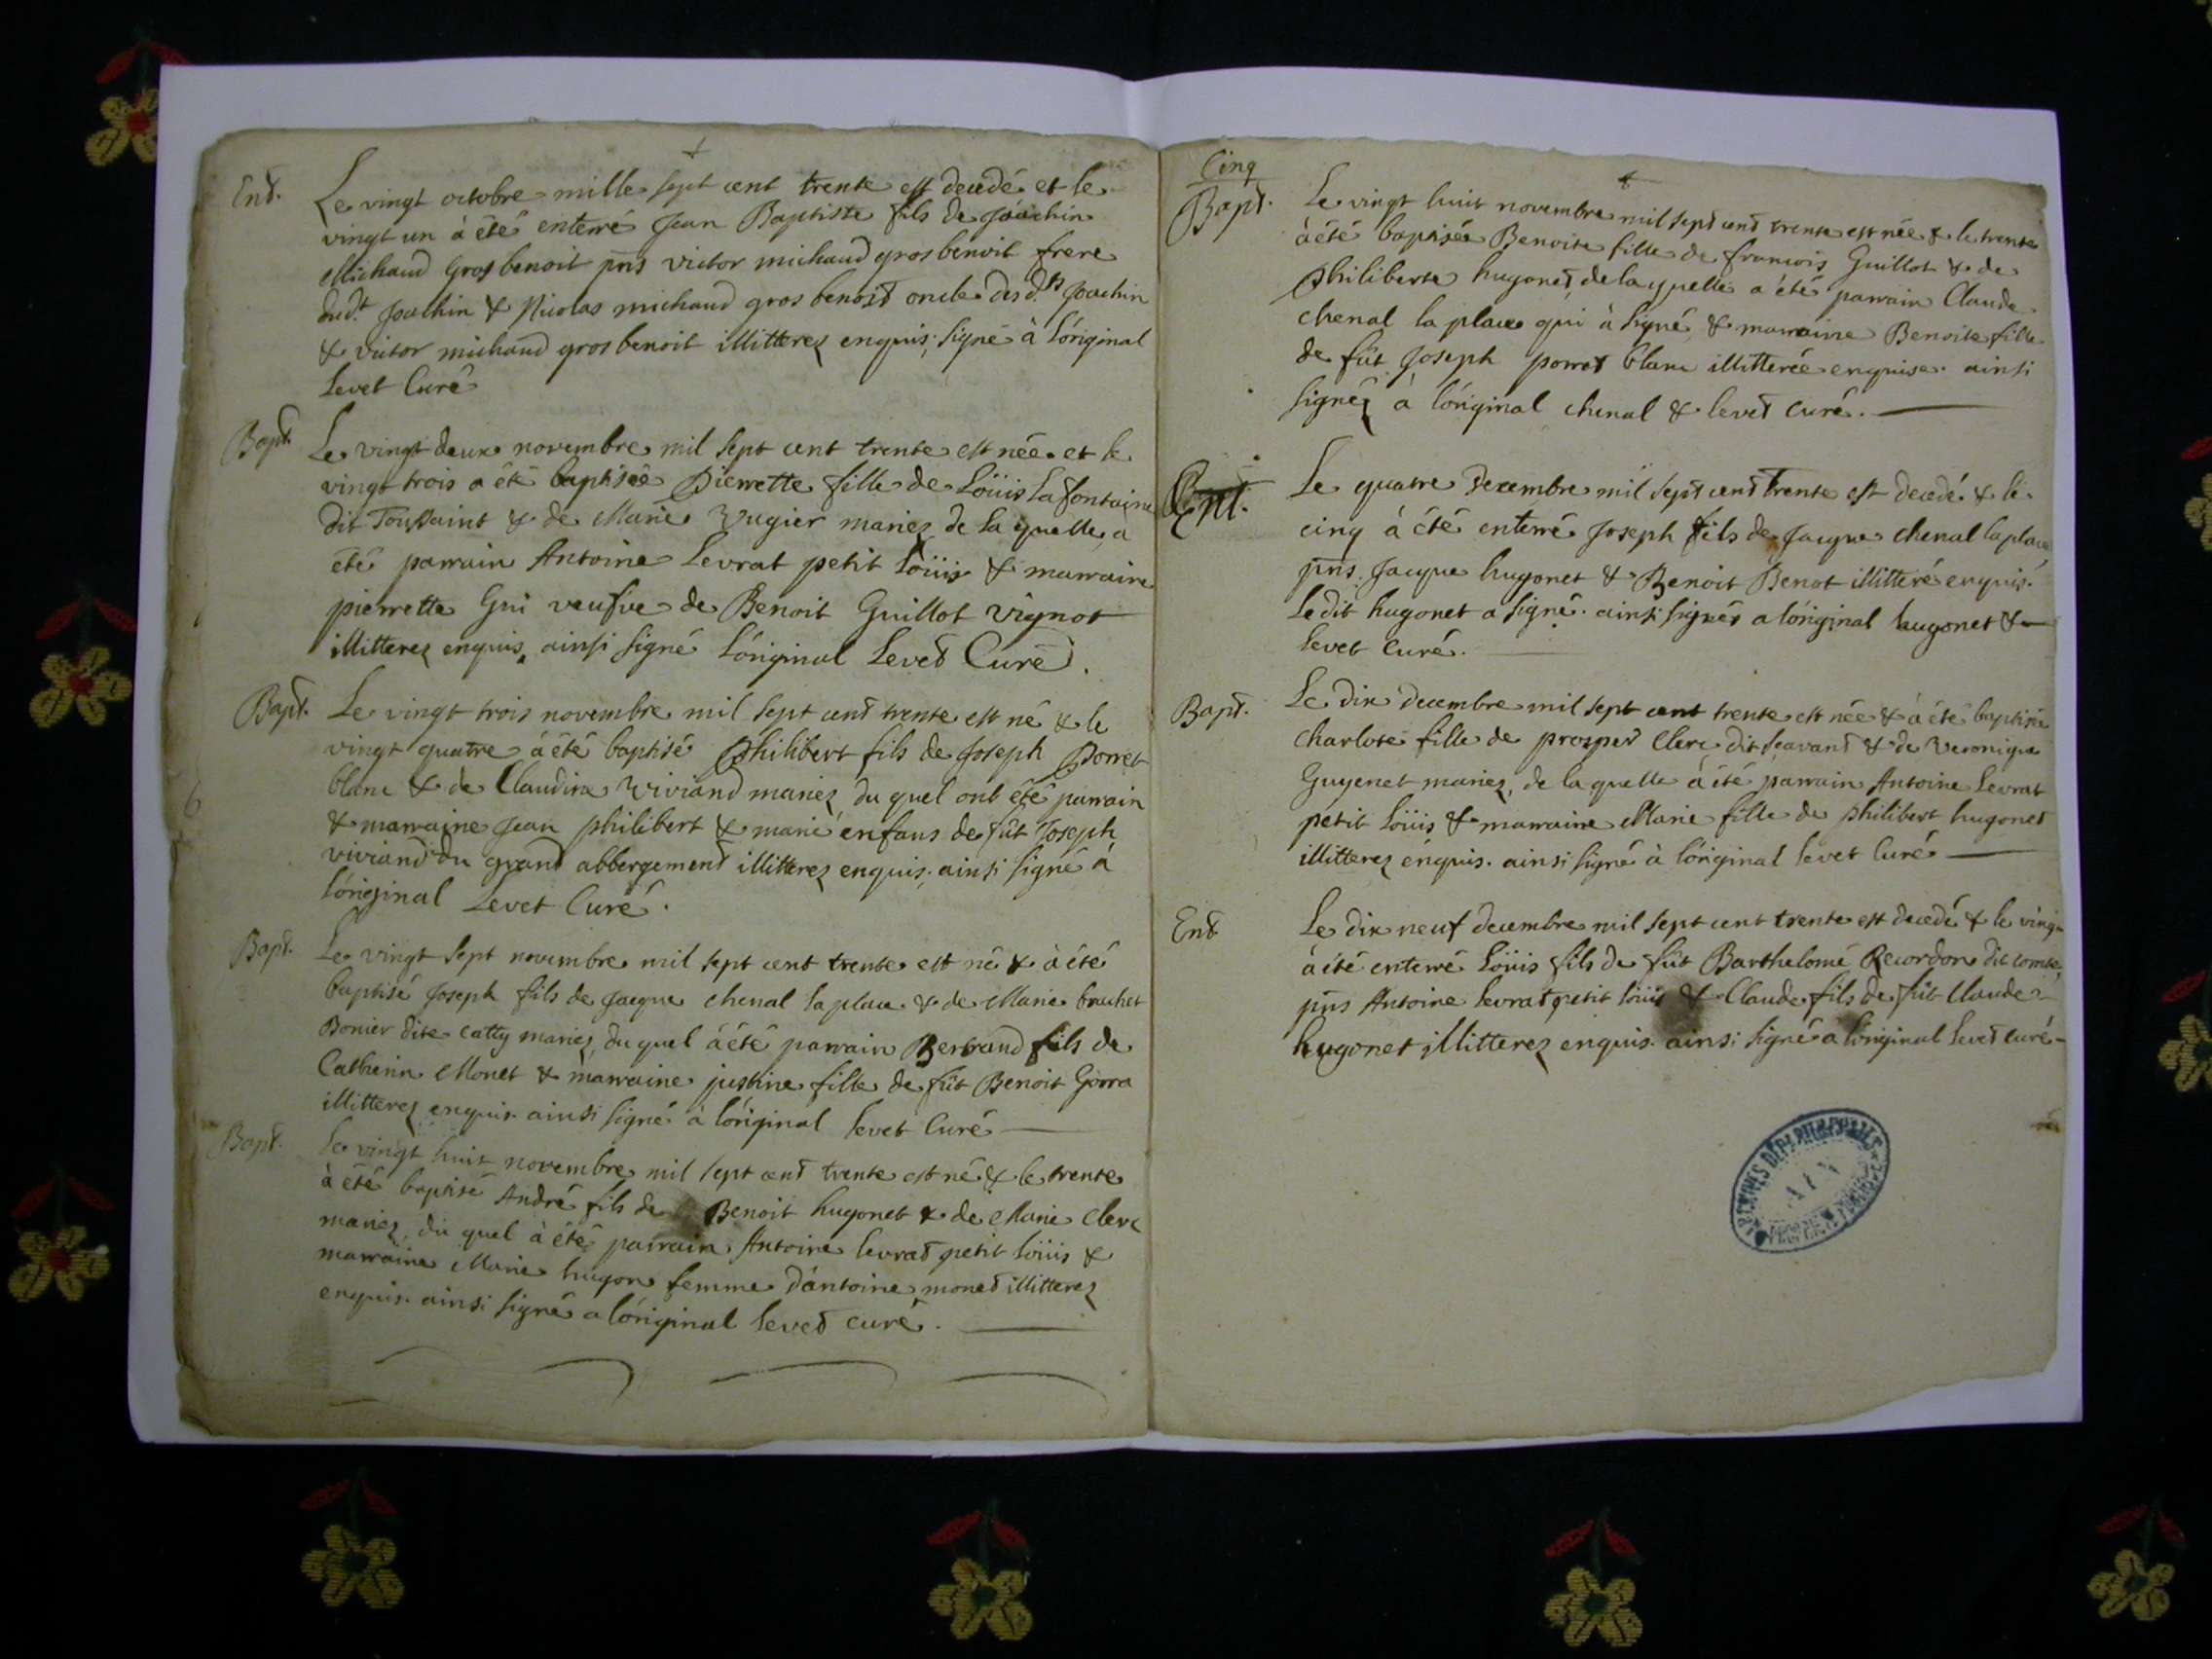 Ent.
Le vingt octobre mille sept cent trente est decedé et le
vingt un à été enterré Jean Baptiste fils de Joachin
Michaud Gros benoit pñs victor michaud gros benoit frere
dud.t Joachin & Nicolas michaud gros benoit oncle des d.ts Joachin
& victor michaud gros benoit illitterez enquis, signé à l'original
Levet Curé
Bapt.
Le vingt deux novembre mil sept cent trente est née et le
vingt trois a été baptisée Pierrette fille de Loüis Lafontaine
dit Toussaint & de Marie Vugier mariez de la quelle a
été parrain Antoine Levrat petit Loüis & marraine
pierrette Gui veufve de Benoit Guillot Vignot
illitterez enquis, ainsi signé l'original Levet Curé.
Bapt.
Le vingt trois novembre mil sept cent trente est né & le
vingt quatre à été baptisé Philibert fils de Joseph Porret
blanc & de Claudine Viviand mariez du quel ont été parrain
& marraine Jean philibert & marie enfans de fût Joseph
viviand du grand abbergement illitterez enquis, ainsi signé à
l'original Levet Curé.
Bapt.
Le vingt sept novembre mil sept cent trente est né & à été
baptisé Joseph fils de Jacque chenal la place & de Marie brachet
Bonier dite catty mariez, du quel à été parrain Bertrand fils de
Catherin Monet & marraine justine fille de fût Benoit Gorra
illitterez enquis. ainsi signé à l'original levet Curé
Bapt.
Le vingt huit novembre mil sept cent trente est né & le trente
à été baptisé André fils de Benoit hugonet & de Marie clerc
mariez, du quel à été parrain Antoine levrat petit loüis &
marraine Marie hugon femme d'antoine monet illitterez
enquis. ainsi signé a l'original levet curé.
Cinq
Bapt.
Le vingt huit novembre mil sept cent trente est née & le trente
à été baptisée Benoite fille de francois Guillot & de
Philiberte hugonet, de la quelle a été parrain Claude
chenal la place qui à signé, & marraine Benoite fille
de fût Joseph porret blanc illitterée enquise. ainsi
signéz à l'original chenal & levet curé.
Ent.
Le quatre decembre mil sept cent trente est decedé & le
cinq à été enterré Joseph fils de Jacque chenal la place
pñs. Jacque hugonet & Benoit Benot illitteré enquis.
Le dit hugonet a signé. ainsi signés a l'original hugonet &
levet curé.
Bapt.
Le dix decembre mil sept cent trente est née & à été baptisée
charlote fille de prosper Clerc dit sçavant & de Veronique
Guyenet mariez, de la quelle à été parrain Antoine Levrat
petit Loüis & marraine Marie fille de philibert hugonet
illitterez énquis. ainsi signé à l'original levet Curé
Ent
Le dix neuf decembre mil sept cent trente est decedé & le vingt
à été enterré Loüis fils de fût Barthelomé Recordon dit comte,
pñs Antoine levrat petit loüis & Claude fils de fût Claude
hugonet illitterez enquis. ainsi signé a l'original levet curé
AIN